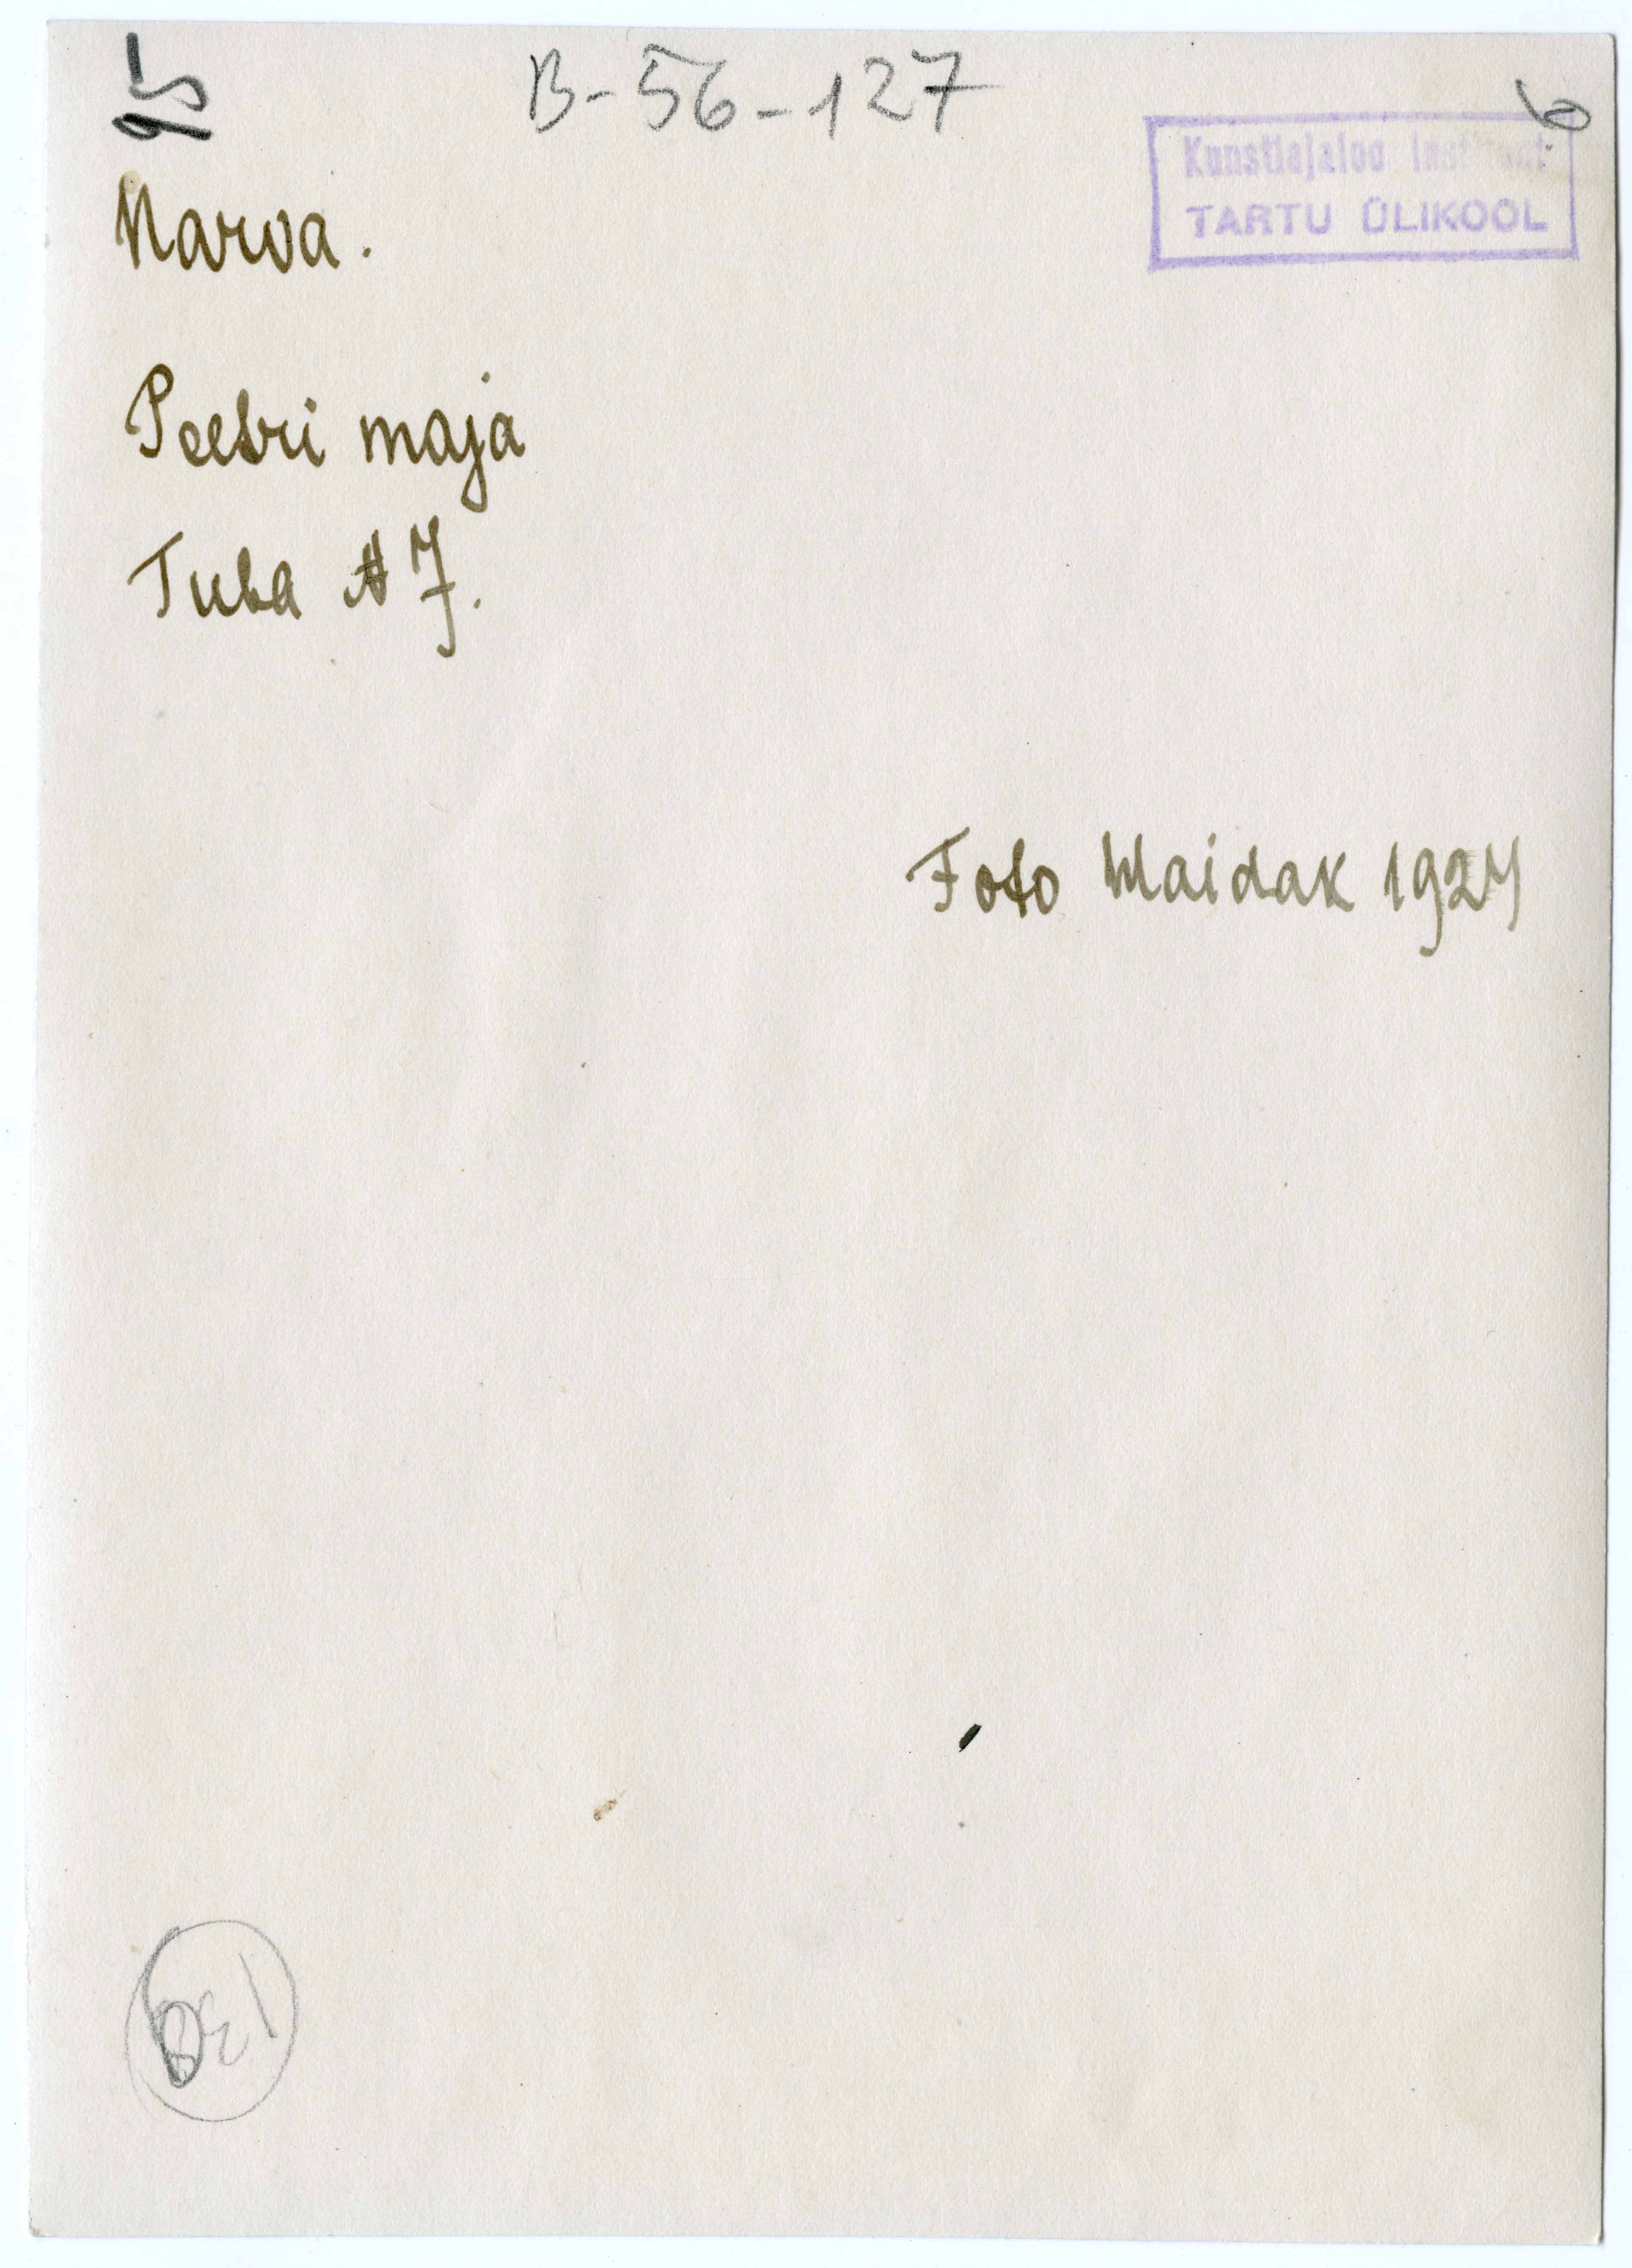 B-56-127
6
Kunstiajaloo Instituut
TARTU ÜLIKOOL
Narva.
Peetri maja
Tuba № 7.
Foto Maidak 1927
138